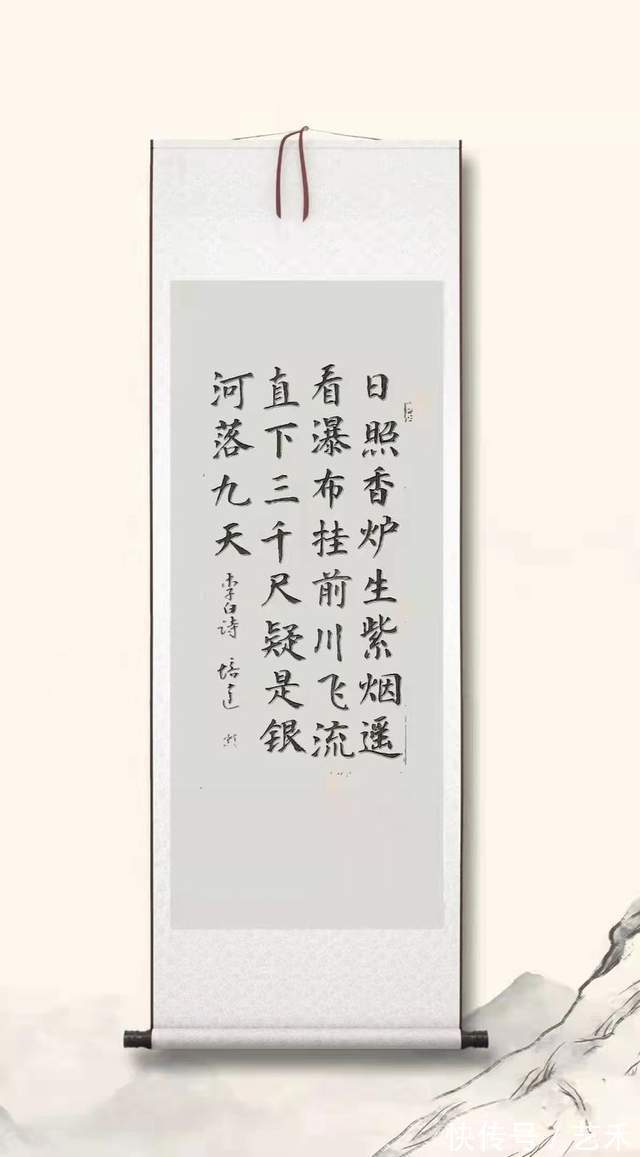 日照香炉生紫烟遥
看瀑布挂前川飞流
直下三千尺疑是银
河落九天
李白诗 培
快传号 / 艺禾